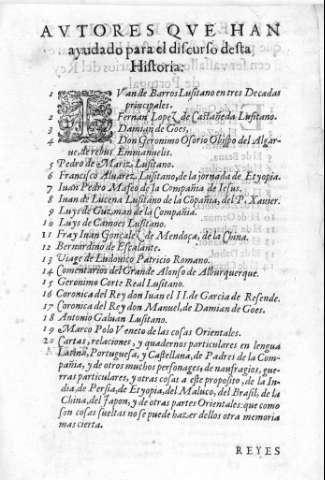 AVTORES QVE HAN
ayudado para el discurso desta
Historia.
1 IVan de Barros Lusitano en tres Decadas
principales.
2 Fernan Lopez de Castañeda Lusitano.
3 Damian de Goes,
4 Don Geronimo Osorio Obispo del Algar-
ue, de rebus Emmanuelis.
5 Pedro de Mariz Lusitano.
6 Francisco Aluarez Lusitano, de la jornada de Etyopia.
7 Iuan Pedro Mafeo de la Compañia de Iesus.
8 Iuan de Lucena Lusitano de la Cõpañia, del P. Xauier.
9 Luys de Guzman de la Compañia.
10 Luys de Camoes Lusitano.
11 Fray Iuan Gonçalez de Mendoça, de la China.
12 Bernardino de Escalante.
13 Viage de Ludouico Patricio Romano.
14 Comentarios del Grande Alonso de Alburquerque.
15 Geronimo Corte Real Lusitano.
16 Coronica del Rey don Iuan el II. de Garcia de Resende.
17 Coronica del Rey don Manuel, de Damian de Goes.
18 Antonio Galuan Lusitano.
19 Marco Polo Veneto de las cosas Orientales.
20 Cartas, relaciones, y quadernos particulares en lengua
Latina, Portuguesa, y Castellana, de Padres de la Com-
pañia, y de otros muchos personages, de naufragios, gue-
rras particulares, y otras cosas a este proposito, de la In-
dia, de Persia, de Etyopia, del Maluco, del Brasil, de la
China, del Iapon, y de otras partes Orientales: que como
son cosas sueltas no se puede hazer dellos otra memoria
mas cierta.
REYES